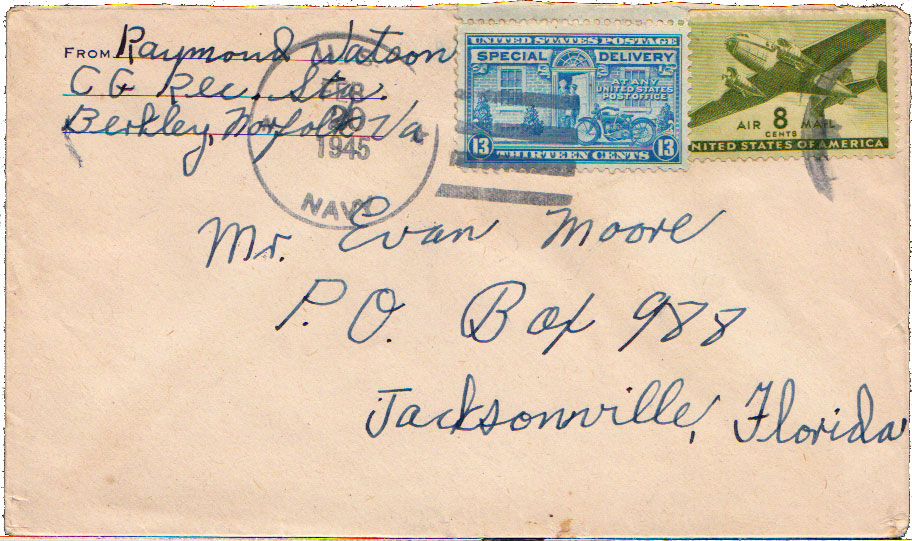 FROM Raymond Watson
C G Rec. Sta.
Berkley, Norfolk Va
1945
NAVY
UNITED STATES POSTAGE
SPECIAL DELIVERY
AT ANY
UNITED STATES
POST OFFICE
13 THIRTEEN CENTS 13
AIR 8 MAIL
CENTS
UNITED STATES OF AMERICA
Mr. Evan Moore
P.O. Box 988
Jacksonville, Florida